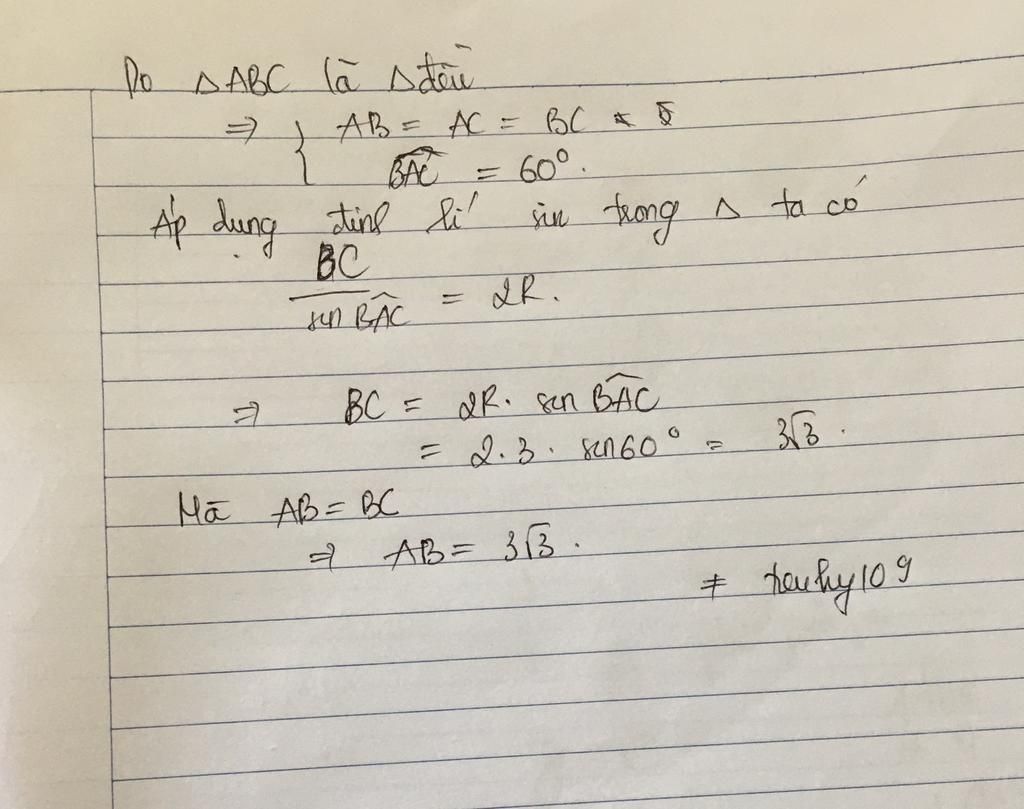 Do △ABC là △đều
⇒ { AB = AC = BC
BAC = 60°.
Áp dụng định lí sin trong △ ta có
BC / sin BAC = 2R.
⇒ BC = 2R. sin BAC
= 2.3. sin60° = 3√3.
Mà AB = BC
⇒ AB = 3√3.